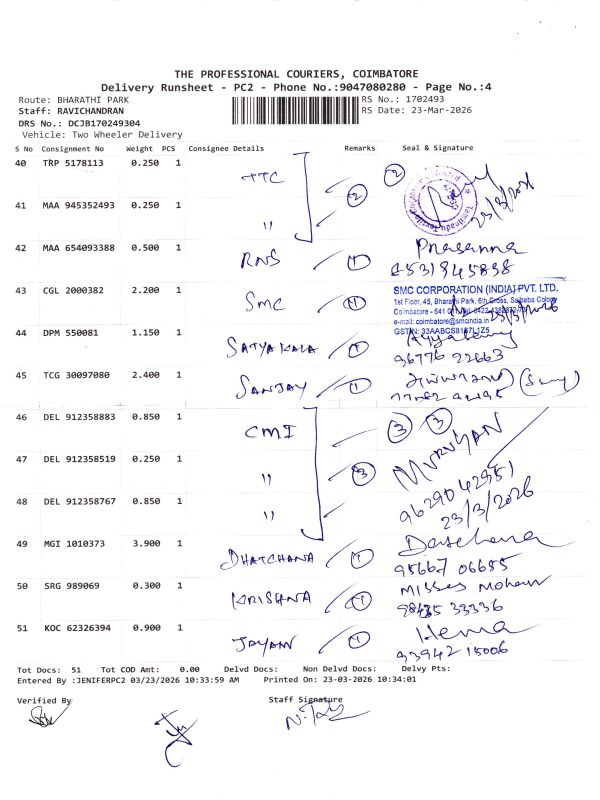 THE PROFESSIONAL COURIERS, COIMBATORE
Delivery Runsheet - PC2 - Phone No.:9047080280 - Page No.:4
Route: BHARATHI PARK RS No.: 1702493
Staff: RAVICHANDRAN RS Date: 23-Mar-2026
DRS No.: DCJB170249304
Vehicle: Two Wheeler Delivery
S No Consignment No Weight PCS Consignee Details Remarks Seal & Signature
40 TRP 5178113 0.250 1 TTC 2 2
41 MAA 945352493 0.250 1 "
42 MAA 654093388 0.500 1 RNS 1 Prasanna
43 CGL 2000382 2.200 1 SMC 1
SMC CORPORATION (INDIA) PVT. LTD.
1st Floor, 45, Bharathi Park, 6th Cross, Saibaba Colony
Coimbatore - 641
e-mail: coimbatore@smcindia.in
44 DPM 550081 1.150 1 SATYAKALA 1
96776 22663
45 TCG 30097080 2.400 1 SANJAY 1
46 DEL 912358883 0.850 1 CMI 3 3
47 DEL 912358519 0.250 1 " 3 MURUGAN
9629042951
48 DEL 912358767 0.850 1 " 23/3/2026
49 MGI 1010373 3.900 1 DHATCHANA 1
95667 06655
50 SRG 989069 0.300 1 KRISHNA 1
33336
51 KOC 62326394 0.900 1 JAYAN 1 Hema
93942 15006
Tot Docs: 51 Tot COD Amt: 0.00 Delvd Docs: Non Delvd Docs: Delvy Pts:
Entered By :JENIFERPC2 03/23/2026 10:33:59 AM Printed On: 23-03-2026 10:34:01
Verified By Staff Signature